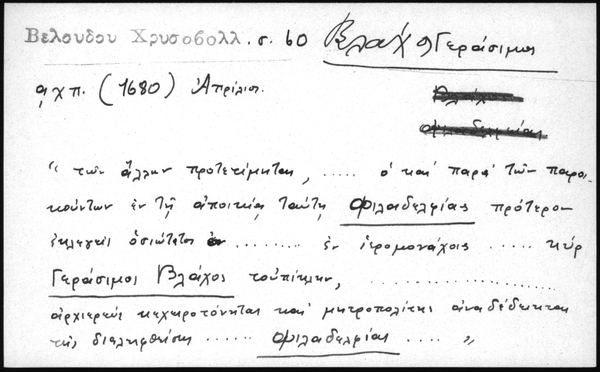 Βελουδου Χρυσοβολλ. σ. 60 Βλάχος Γεράσιμος
ͺαχπ. (1680) Ἀπρίλιος.
Βλάχος
Φιλαδελφείας
"τῶν ἄλλων προτετίμηται, ..... ὁ καὶ παρὰ τῶν παροι-
κούντων ἐν τῇ ἀποικίᾳ ταύτῃ Φιλαδελφίας πρότερον
ἐκλεγεὶς ὁσιώτατος ......... ἐν ἱερομονάχοις ..... κύρ
Γεράσιμος Βλάχος τοὐπίκλην, ......................
ἀρχιερεὺς κεχειροτόνηται καὶ μητροπολίτης ἀναδέδεικται
τῆς διαληφθείσης ...... Φιλαδελφίας .... "